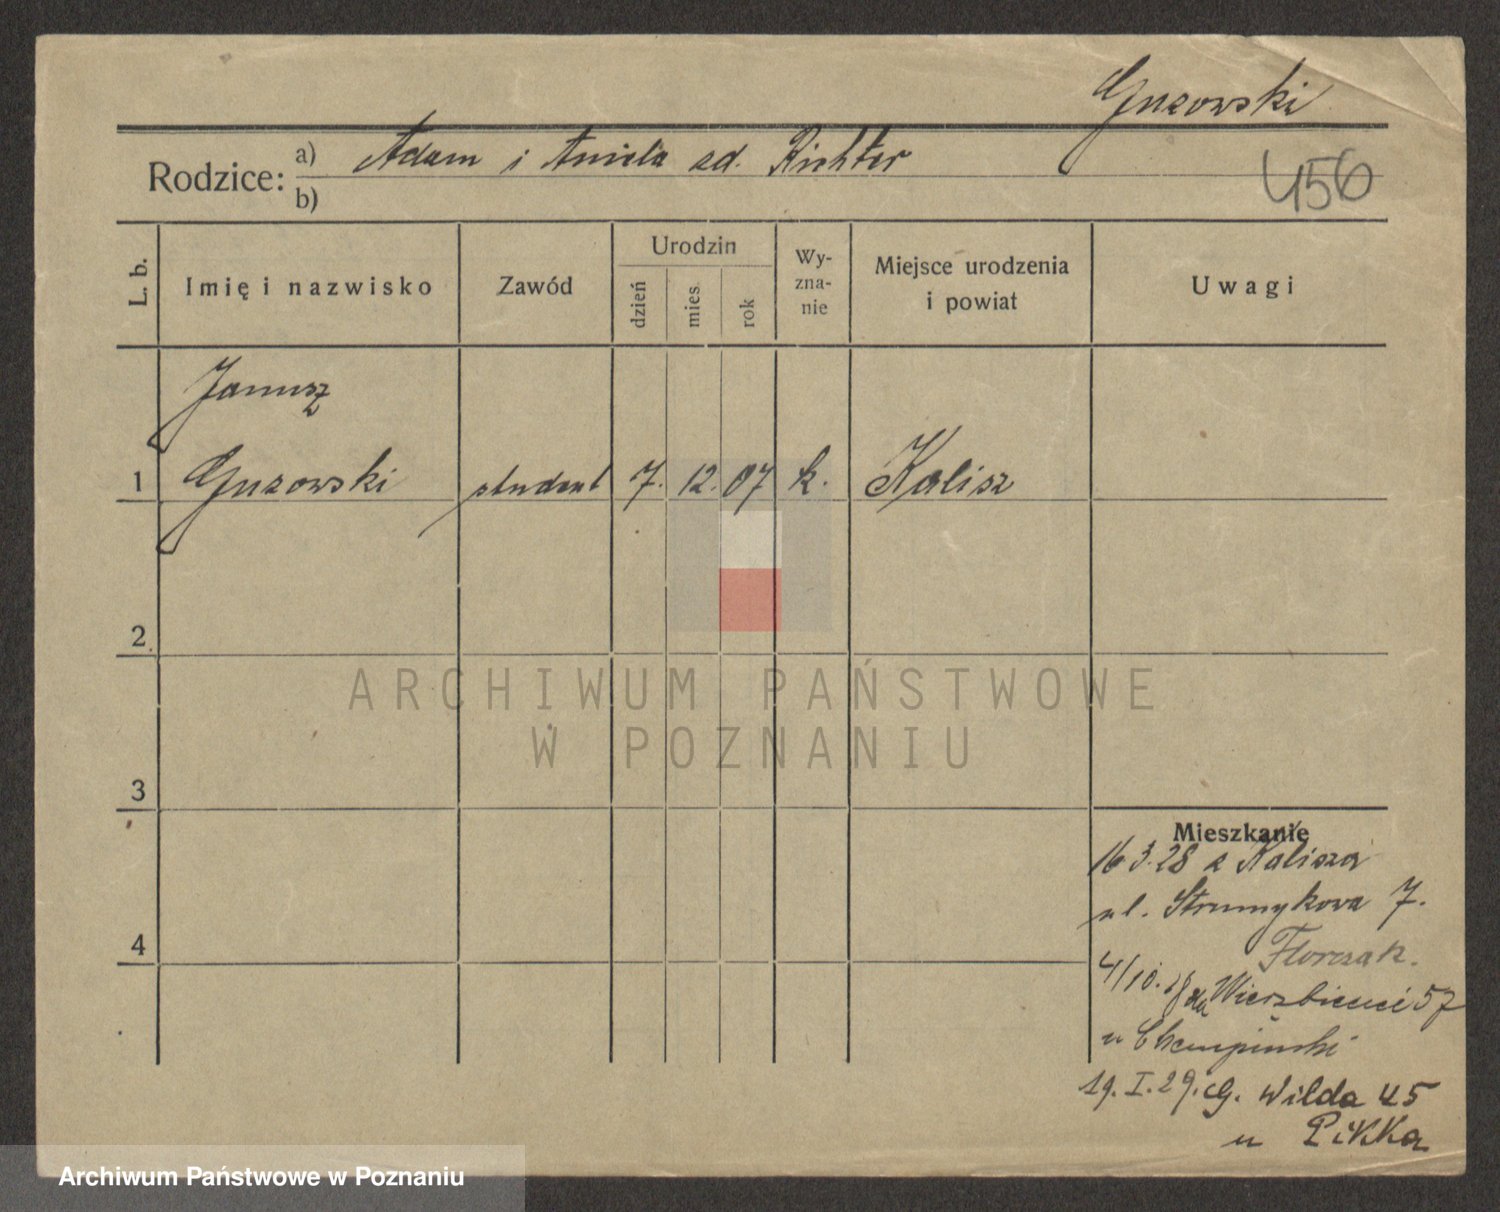 Guzowski
Rodzice: a) Adam i Aniela zd. Richter
b)
456
L. b.
Imię i nazwisko
Zawód
Urodzin
dzień
mies.
rok
Wy-
zna-
nie
Miejsce urodzenia
i powiat
Uwagi
Janusz
1 Guzowski student 7. 12. 07 k. Kalisz
2
ARCHIWUM PAŃSTWOWE
W POZNANIU
3
Mieszkanie
16 3.28 z Kalisza
ul. Strumykowa 7.
Florczak.
4
4/10. Wierzbięcici 57
u
19. I. 29. G. Wilda 45
u Pikka
Archiwum Państwowe w Poznaniu